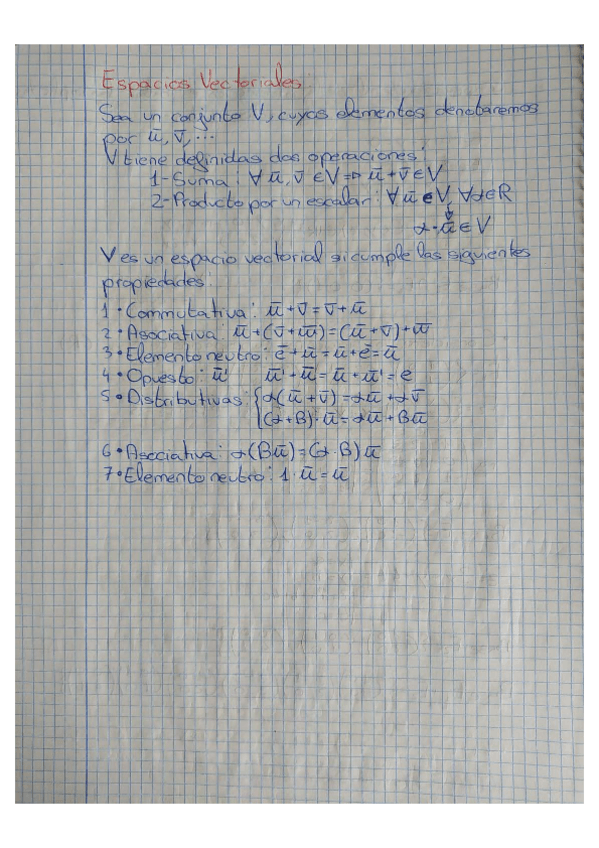 Espacios Vectoriales:
Sea un conjunto V, cuyos elementos denotaremos
por ū, v̄, ...
V tiene definidas dos operaciones:
1- Suma: ∀ ū, v̄ ∈ V ⇒ ū + v̄ ∈ V
2- Producto por un escalar: ∀ ū ∈ V, ∀ α ∈ R
⇓
α · ū ∈ V
V es un espacio vectorial si cumple las siguientes
propiedades:
1 • Commutativa: ū + v̄ = v̄ + ū
2 • Asociativa: ū + (v̄ + w̄) = (ū + v̄) + w̄
3 • Elemento neutro: ē + ū = ū + ē = ū
4 • Opuesto: ū' ū' + ū = ū + ū' = e
5 • Distributivas: { α(ū + v̄) = αū + αv̄
(α + B) · ū = αū + Bū
6 • Asociativa: α(Bū) = (α · B) ū
7 • Elemento neutro: 1 · ū = ū